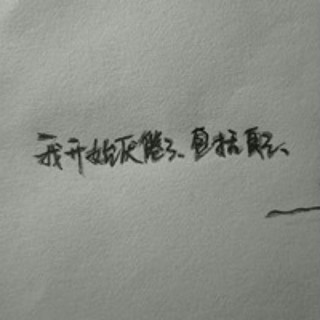 我开始厌倦了、包括